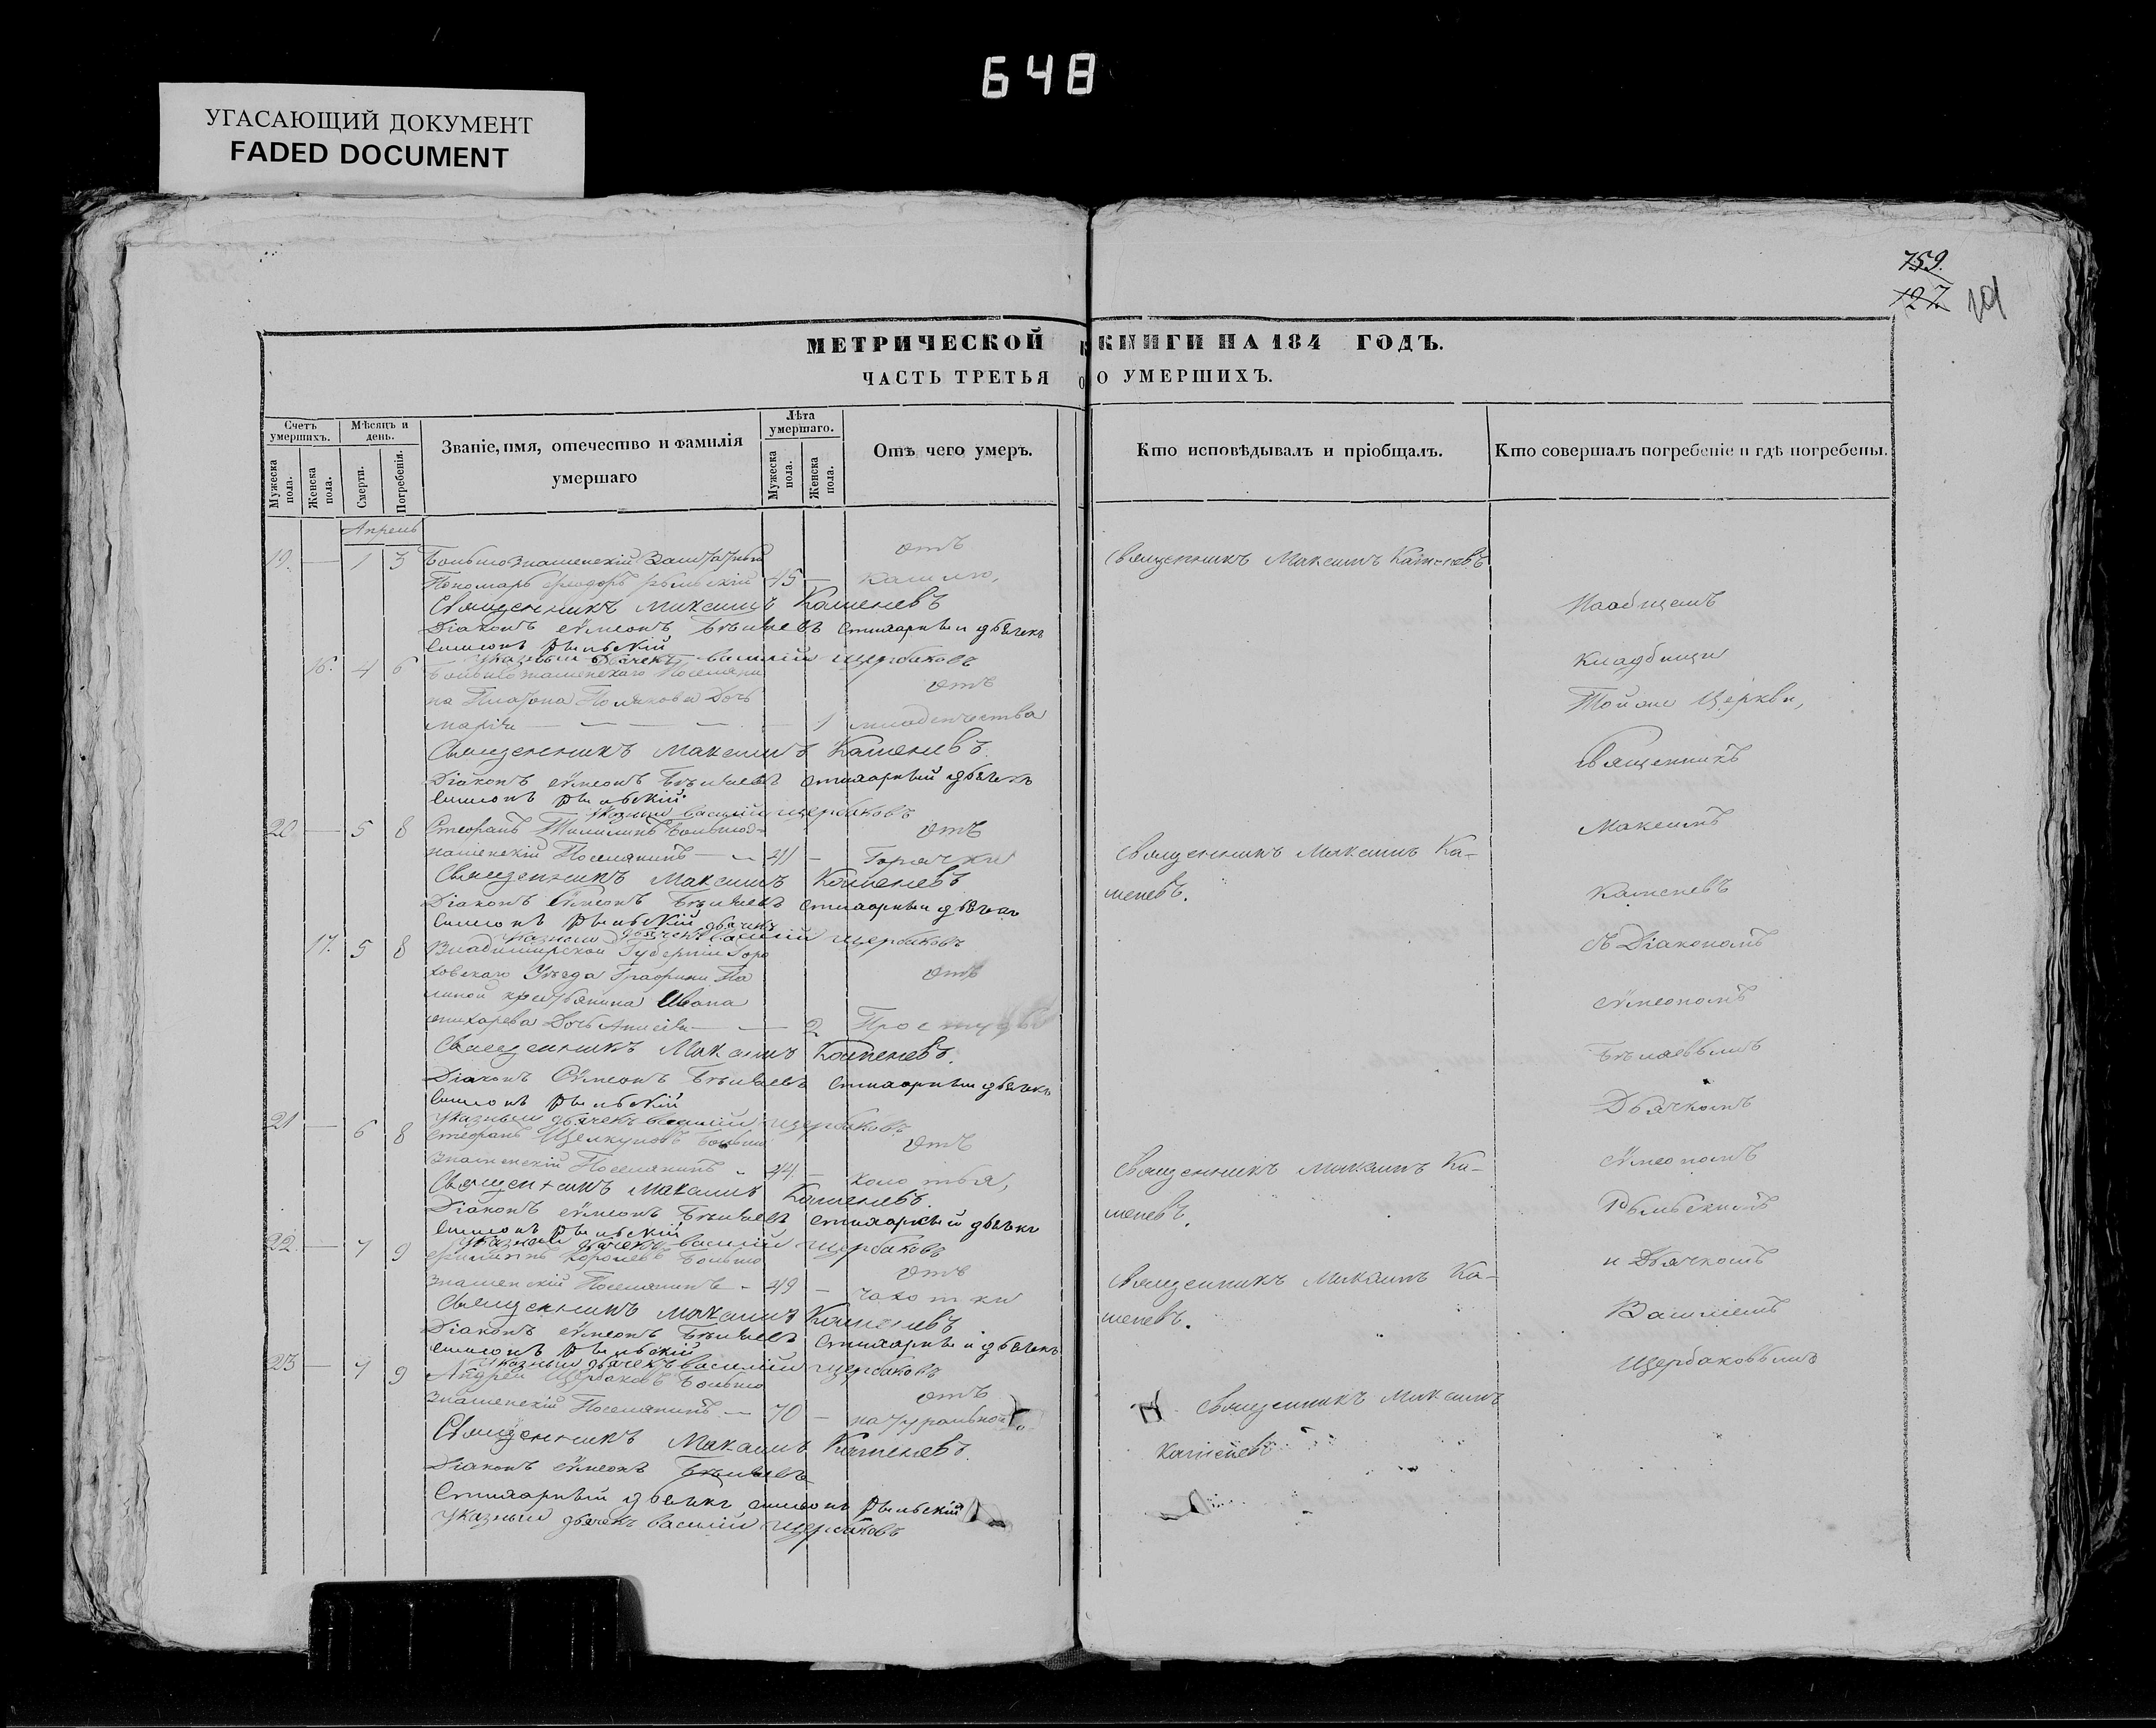 648
УГАСАЮЩИЙ ДОКУМЕНТ
FADED DOCUMENT
759.
127
МЕТРИЧЕСКОЙ КНИГИ НА 184 ГОДЪ.
ЧАСТЬ ТРЕТЬЯ О УМЕРШИХЪ.
Счетъ умершихъ.
Мужеска пола.
Женска пола.
Мѣсяцъ и день.
Смерти.
Погребенія.
Званіе, имя, отечество и фамилія умершаго
Лѣта умершаго.
Мужеска пола.
Женска пола.
Отъ чего умеръ.
Кто исповѣдывалъ и пріобщалъ.
Кто совершалъ погребеніе и гдѣ погребены.
Апрель
19. — 1 3 Большознаменскій Заштатный отъ
Пономарь Ѳеодоръ Рыльскій 45 — кашлю,
Священникъ Максимъ Каменевъ
Діаконъ Сѵмеонъ Бѣляевъ Стихарный дьячекъ
Симеонъ Рыльскій
Указный Дьячекъ Василій Щербаковъ
16. 4 6 Большознаменскаго Поселяни отъ
на Платона Полякова Дочь
Марія — — — — 1 младенчества
Священникъ Максимъ Каменевъ.
Діаконъ Сѵмеонъ Бѣляевъ Стихарный дьячекъ
Симеонъ Рыльскій.
Указный Василій Щербаковъ
20 — 5 8 Стефанъ Большоз- отъ
наменскій Поселянинъ — 41 — Горячки
Священникъ Максимъ Каменевъ
Діаконъ Сѵмеонъ Бѣляевъ Стихарный дьячекъ
Симеонъ Рыльскій
Указный дьячекъ Василій Щербаковъ
17. 5 8 Владимирской Губерніи Горо
ховскаго Уезда Графини Па отъ
ниной крестьянина Ивана
Дочь — — 2 Простуды
Священникъ Максимъ Каменевъ.
Діаконъ Сѵмеонъ Бѣляевъ Стихарный дьячекъ
Симеонъ Рыльскій
Указный дьячекъ Василій Щербаковъ
21 — 6 8 Стефанъ Щелкуновъ Больше отъ
знаменскій Поселянинъ - 44. — колотья,
Священникъ Максимъ Каменевъ.
Діаконъ Сѵмеонъ Бѣляевъ Стихарный дьячекъ
Симеонъ Рыльскій
Указный дьячекъ Василій Щербаковъ
22. — 7 9 Филиппъ Королевъ Больше отъ
знаменскій Поселянинъ - 49 — чахотки
Священникъ Максимъ Каменевъ
Діаконъ Сѵмеонъ Бѣляевъ Стихарный дьячекъ
Симеонъ Рыльскій
Указный дьячекъ Василій Щербаковъ
23 — 7 9 Андрей Щербаковъ Больше отъ
знаменскій Поселянинъ — 70 — натуральной
Священникъ Максимъ Каменевъ.
Діаконъ Сѵмеонъ Бѣляевъ
Стихарный дьячекъ Симеонъ Рыльскій
Указный дьячекъ Василій Щербаковъ
Священникъ Максимъ Каменевъ
Священникъ Максимъ Ка-
меневъ.
Священникъ Максимъ Ка-
меневъ.
Священникъ Максимъ Ка-
меневъ.
Священникъ Максимъ
Каменевъ
На общемъ
Кладбищи
Той же Церкви,
Священникъ
Максимъ
Каменевъ
съ Діакономъ
Сѵмеономъ
Бѣляевымъ
Дьячкомъ
Сѵмеономъ
Рыльскимъ
и Дьячкомъ
Василіемъ
Щербаковымъ